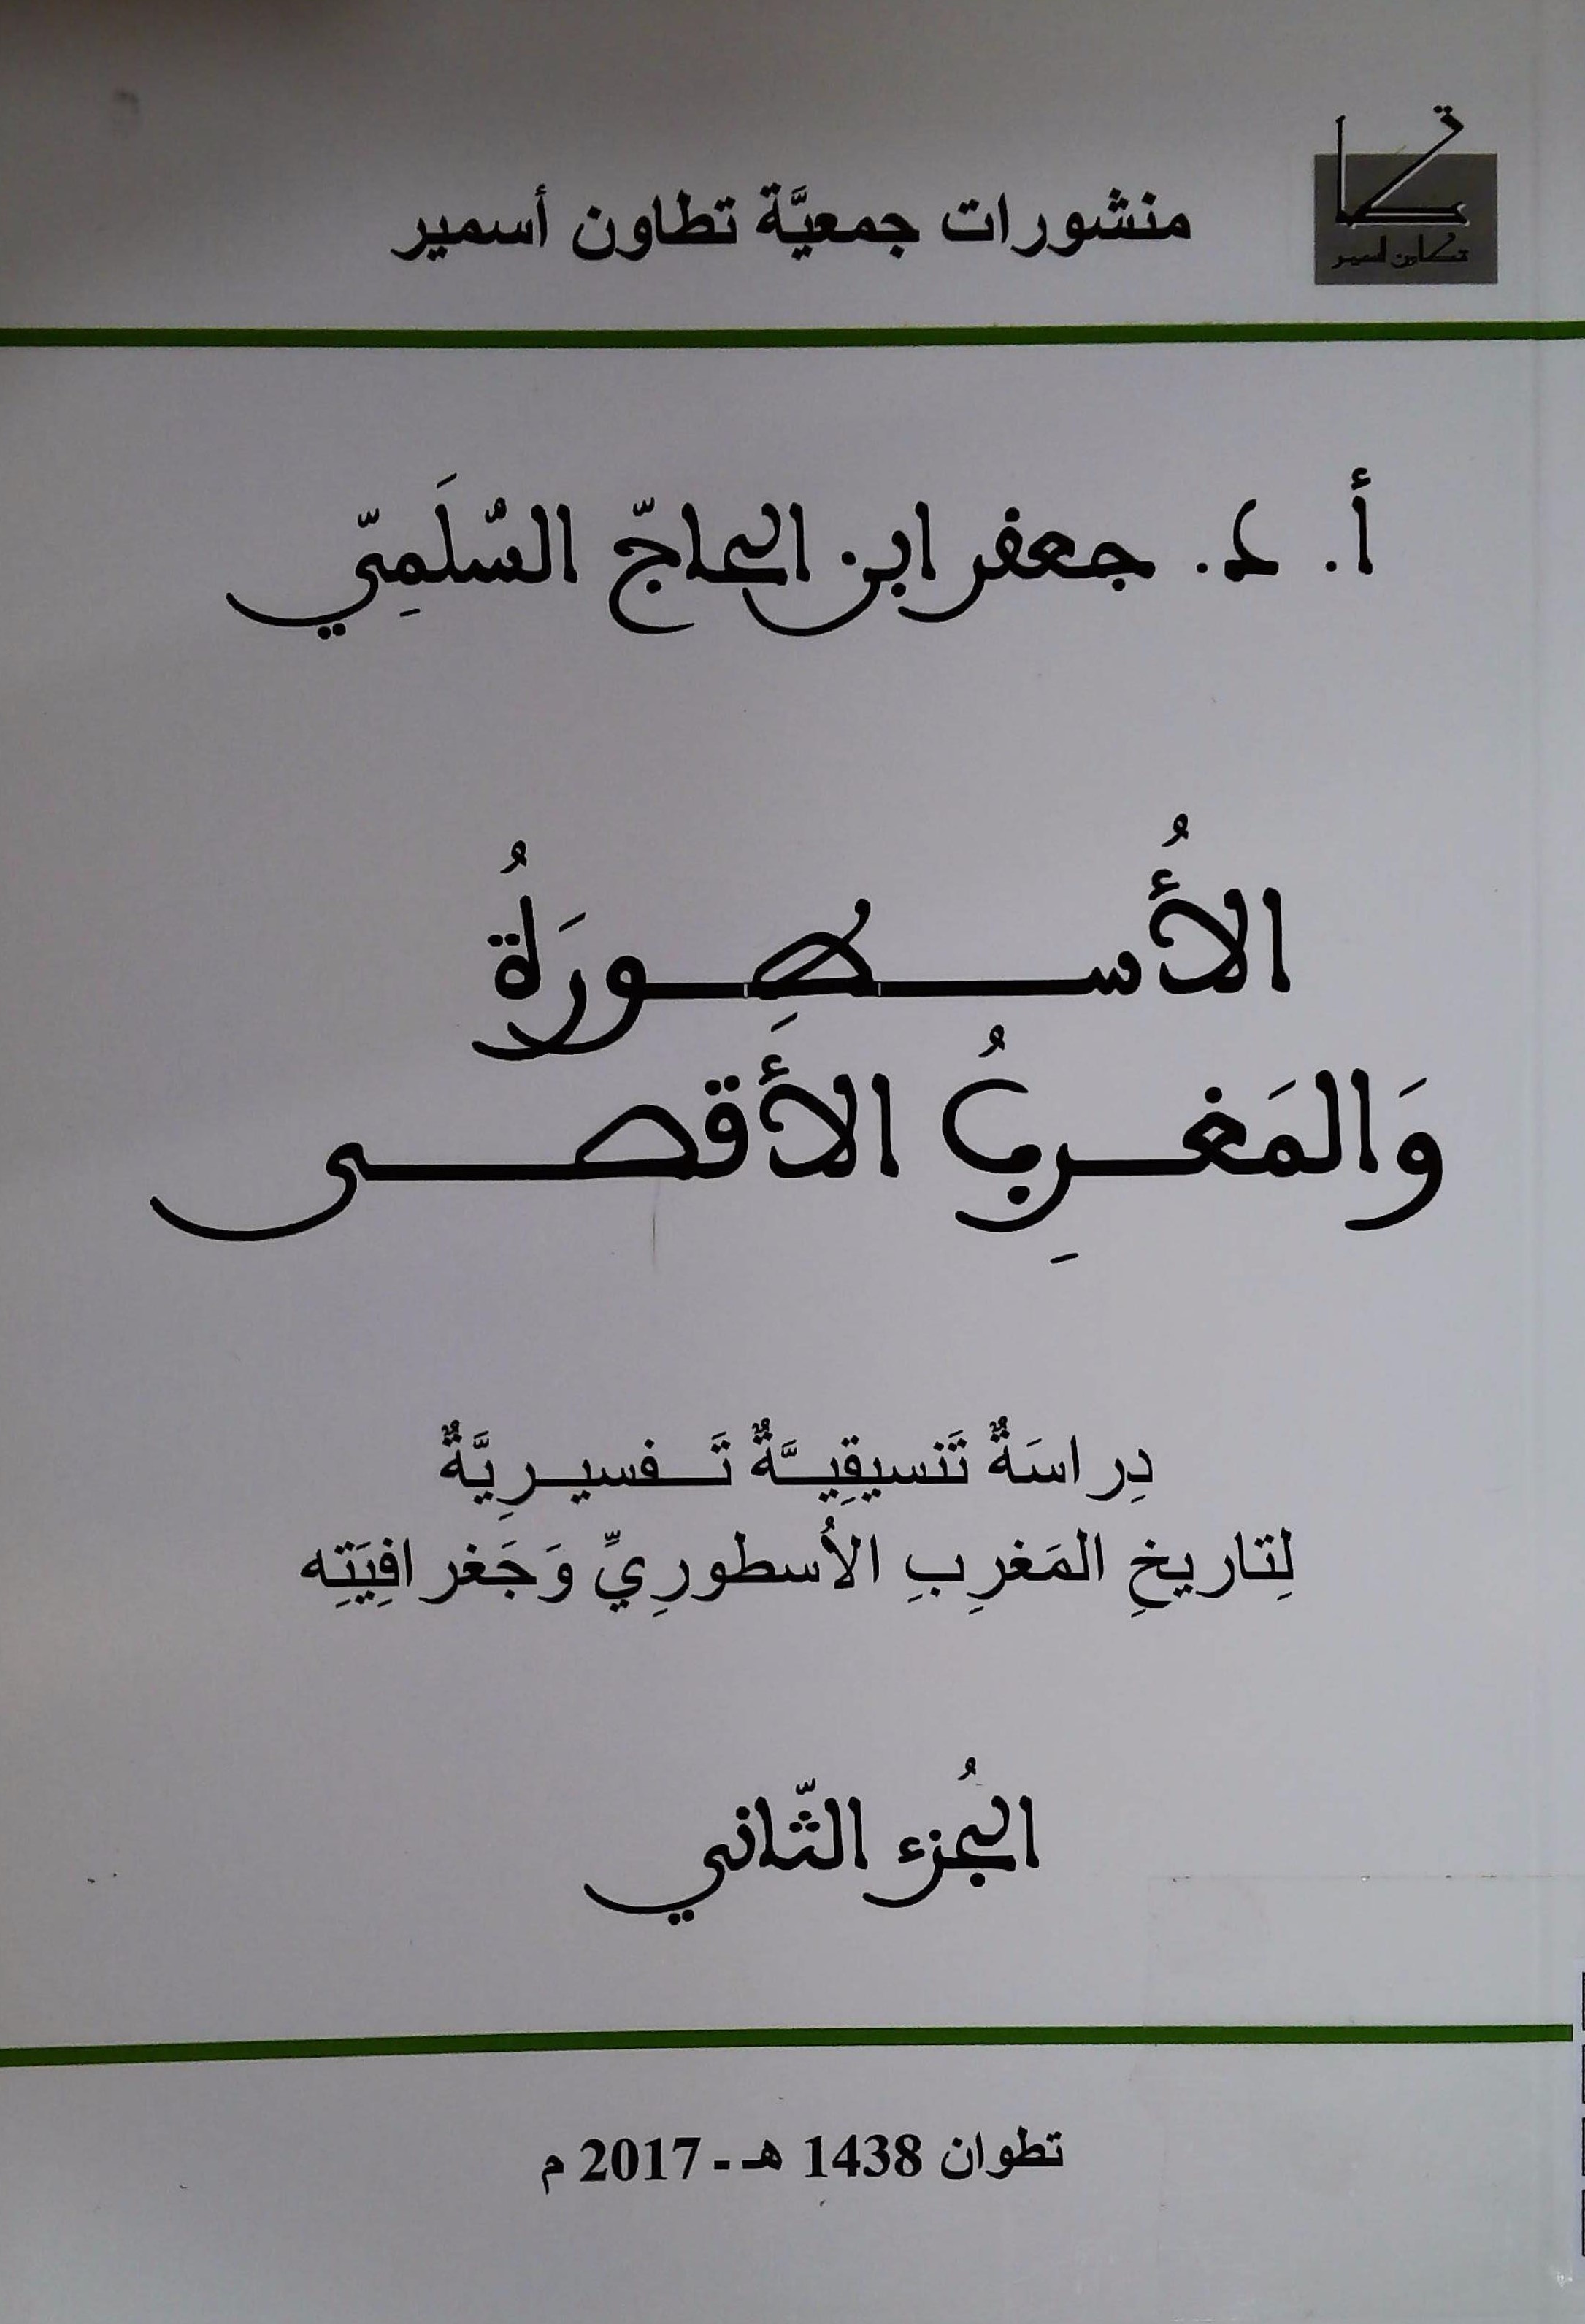 منشورات جمعيَّة تطاون أسمير
تطاون أسمير
أ. د. جعفر ابن الحاجّ السُّلَمِيّ
الأُسطِورَةُ
وَالمَغرِبُ الأَقصى
دِراسَةٌ تَنسيقِيَّةٌ تَفسيرِيَّةٌ
لِتاريخِ المَغرِبِ الأُسطورِيِّ وَجَغرافِيَتِه
الجُزء الثّاني
تطوان 1438 هـ - 2017 م